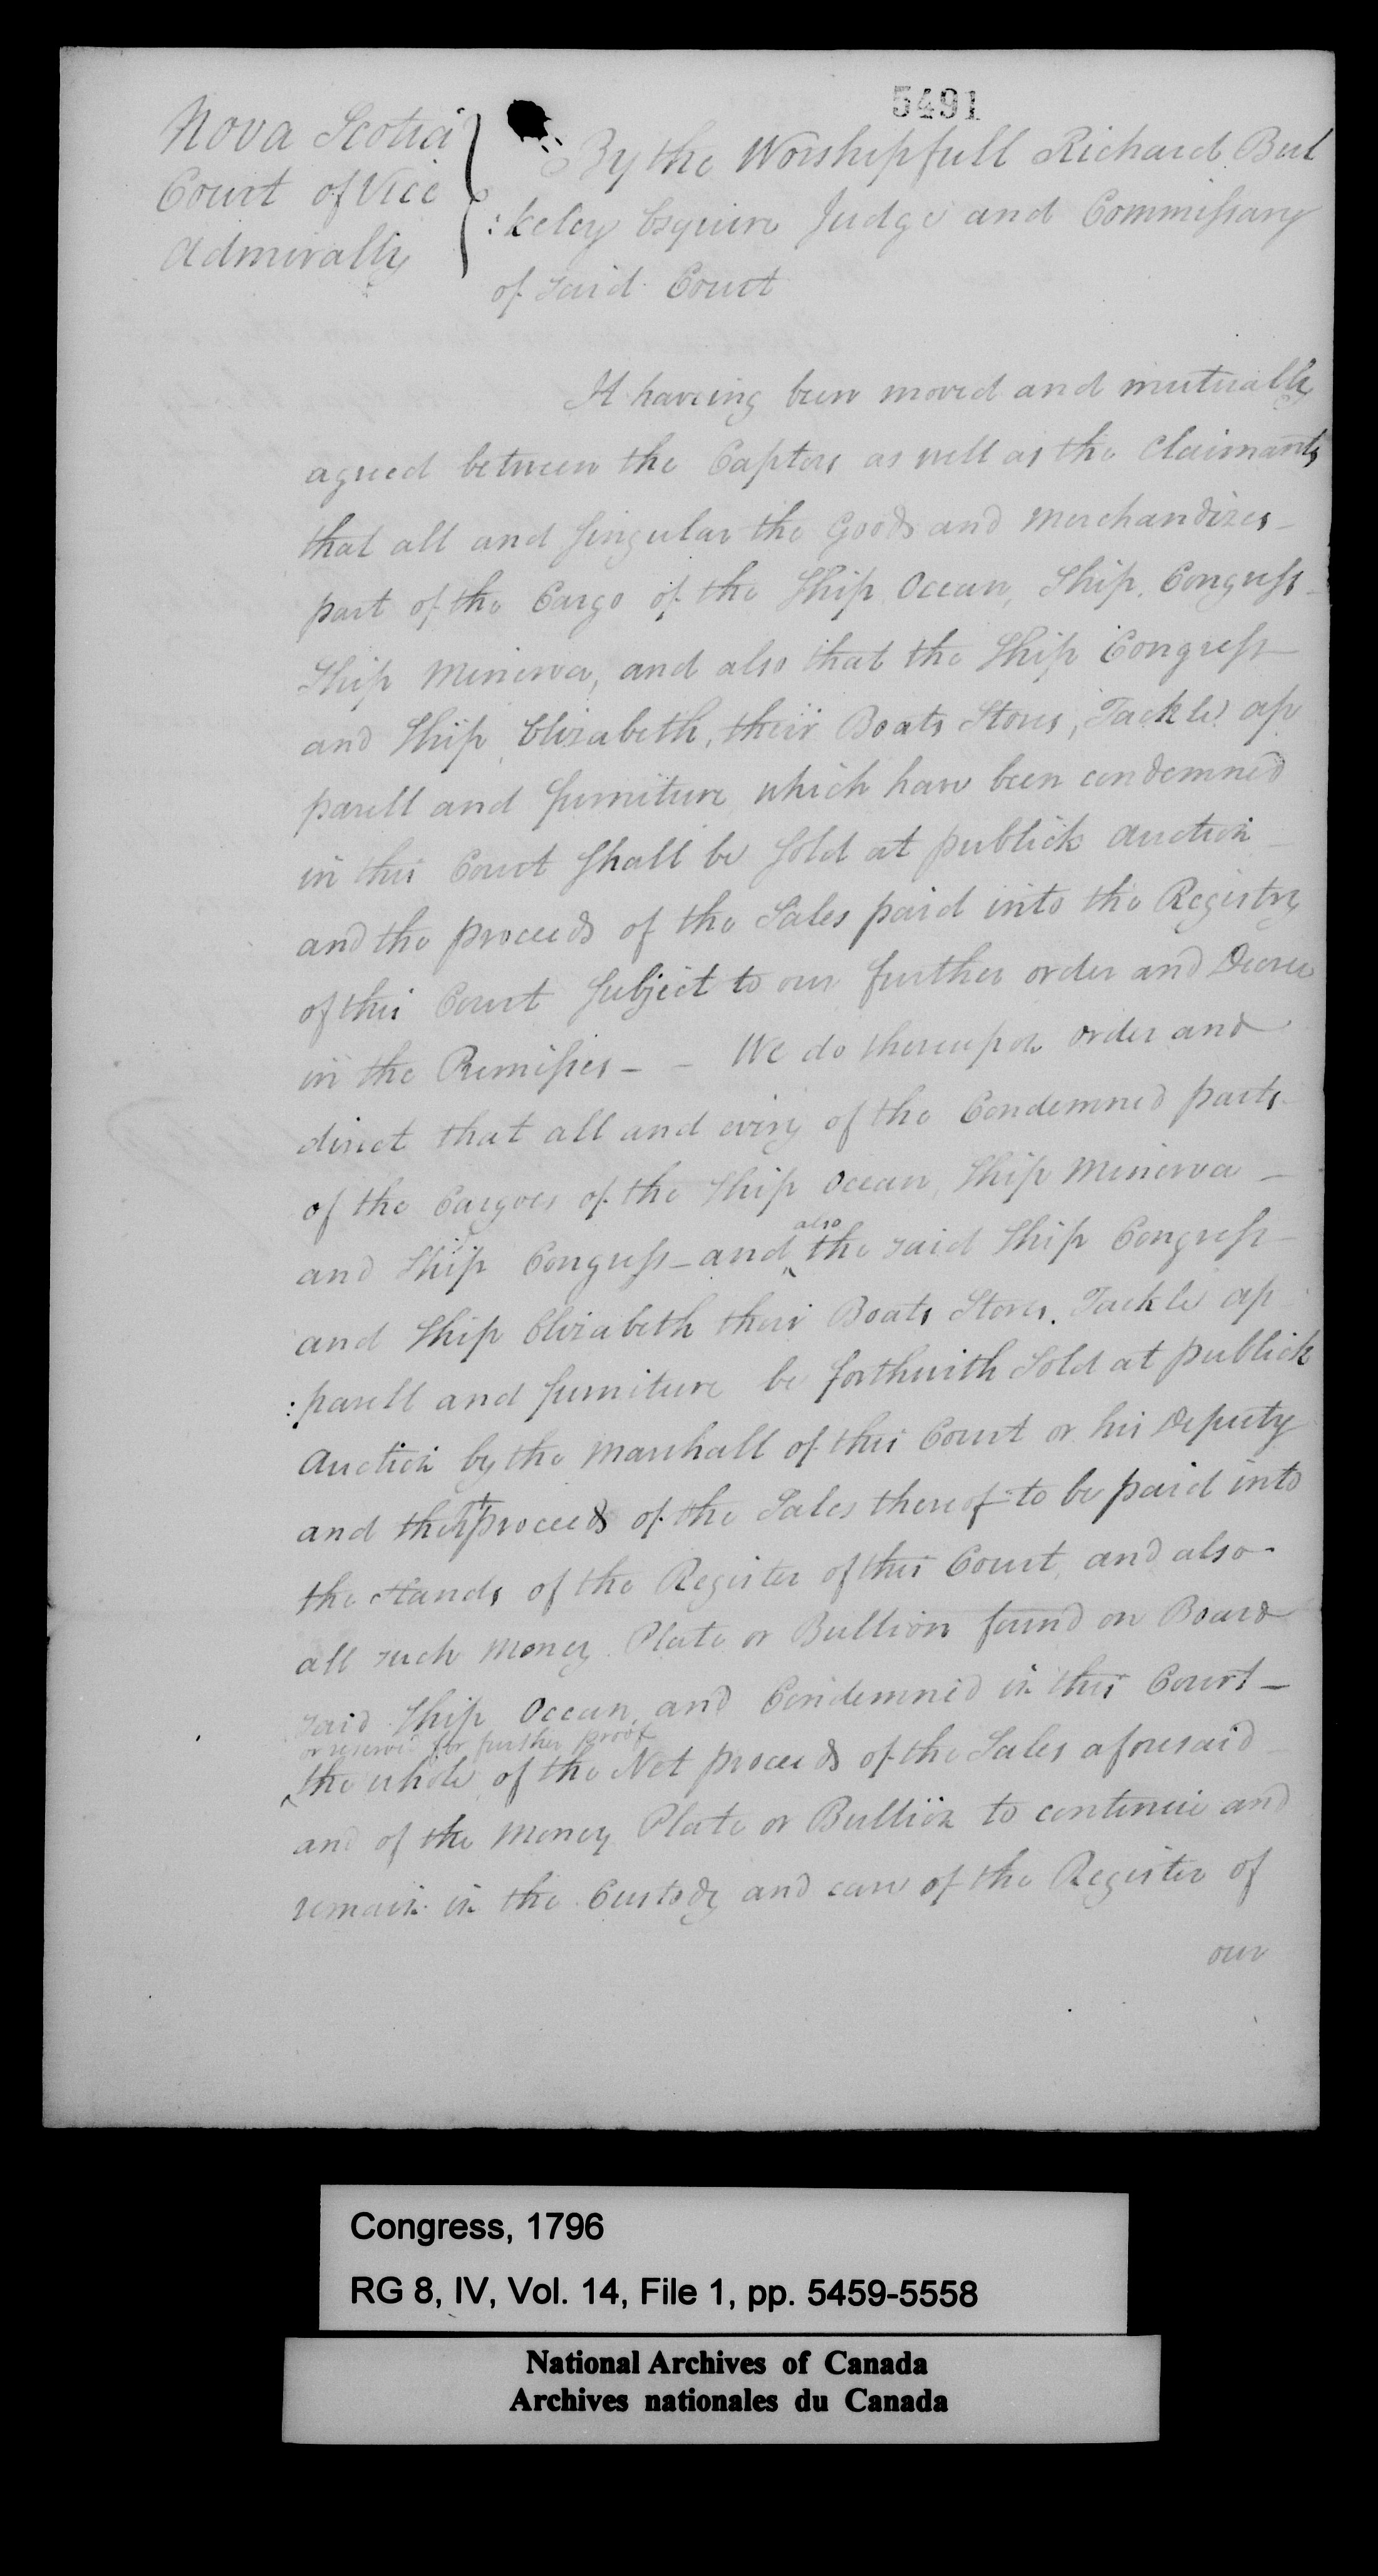 5491
Nova Scotia
Court of Vice
Admiralty
By the Worshipfull Richard Bul
:keley Esquire Judge and Commissary
of said Court
It haveing been moved and mutually
agreed between the Captors as well as the Claimants
that all and singular the Goods and Merchandizes -
part of the Cargo of the Ship Ocean, Ship Congress -
Ship Minerva, and also that the Ship Congress -
and Ship Elizabeth, their Boats Stores, Tackle ap
parell and furniture which have been condemned
in this Court shall be sold at publick auction -
and the proceeds of the Sales paid into the Registry
of this Court subject to our further order and Decree
in the Premisses - - We do thereupon order and
direct that all and every of the Condemned parts
of the Cargoes of the Ship Ocean, Ship Minerva -
also
and Ship Congress - and ‸ the said Ship Congress -
and Ship Elizabeth their Boats Stores, Tackle ap
:parell and furniture be forthwith Sold at publick
Auction by the Marshall of this Court or his Deputy
and the proceeds of the Sales thereof to be paid into
the Hands of the Register of this Court, and also
all such Money Plate or Bullion found on Board
said Ship Ocean, and Condemned in this Court -
or reserved for further proof
‸ the whole of the Net proceeds of the Sales aforesaid
and of the Money Plate or Bullion to continue and
remain in the Custody and care of the Register of
our
Congress, 1796
RG 8, IV, Vol. 14, File 1, pp. 5459-5558
National Archives of Canada
Archives nationales du Canada